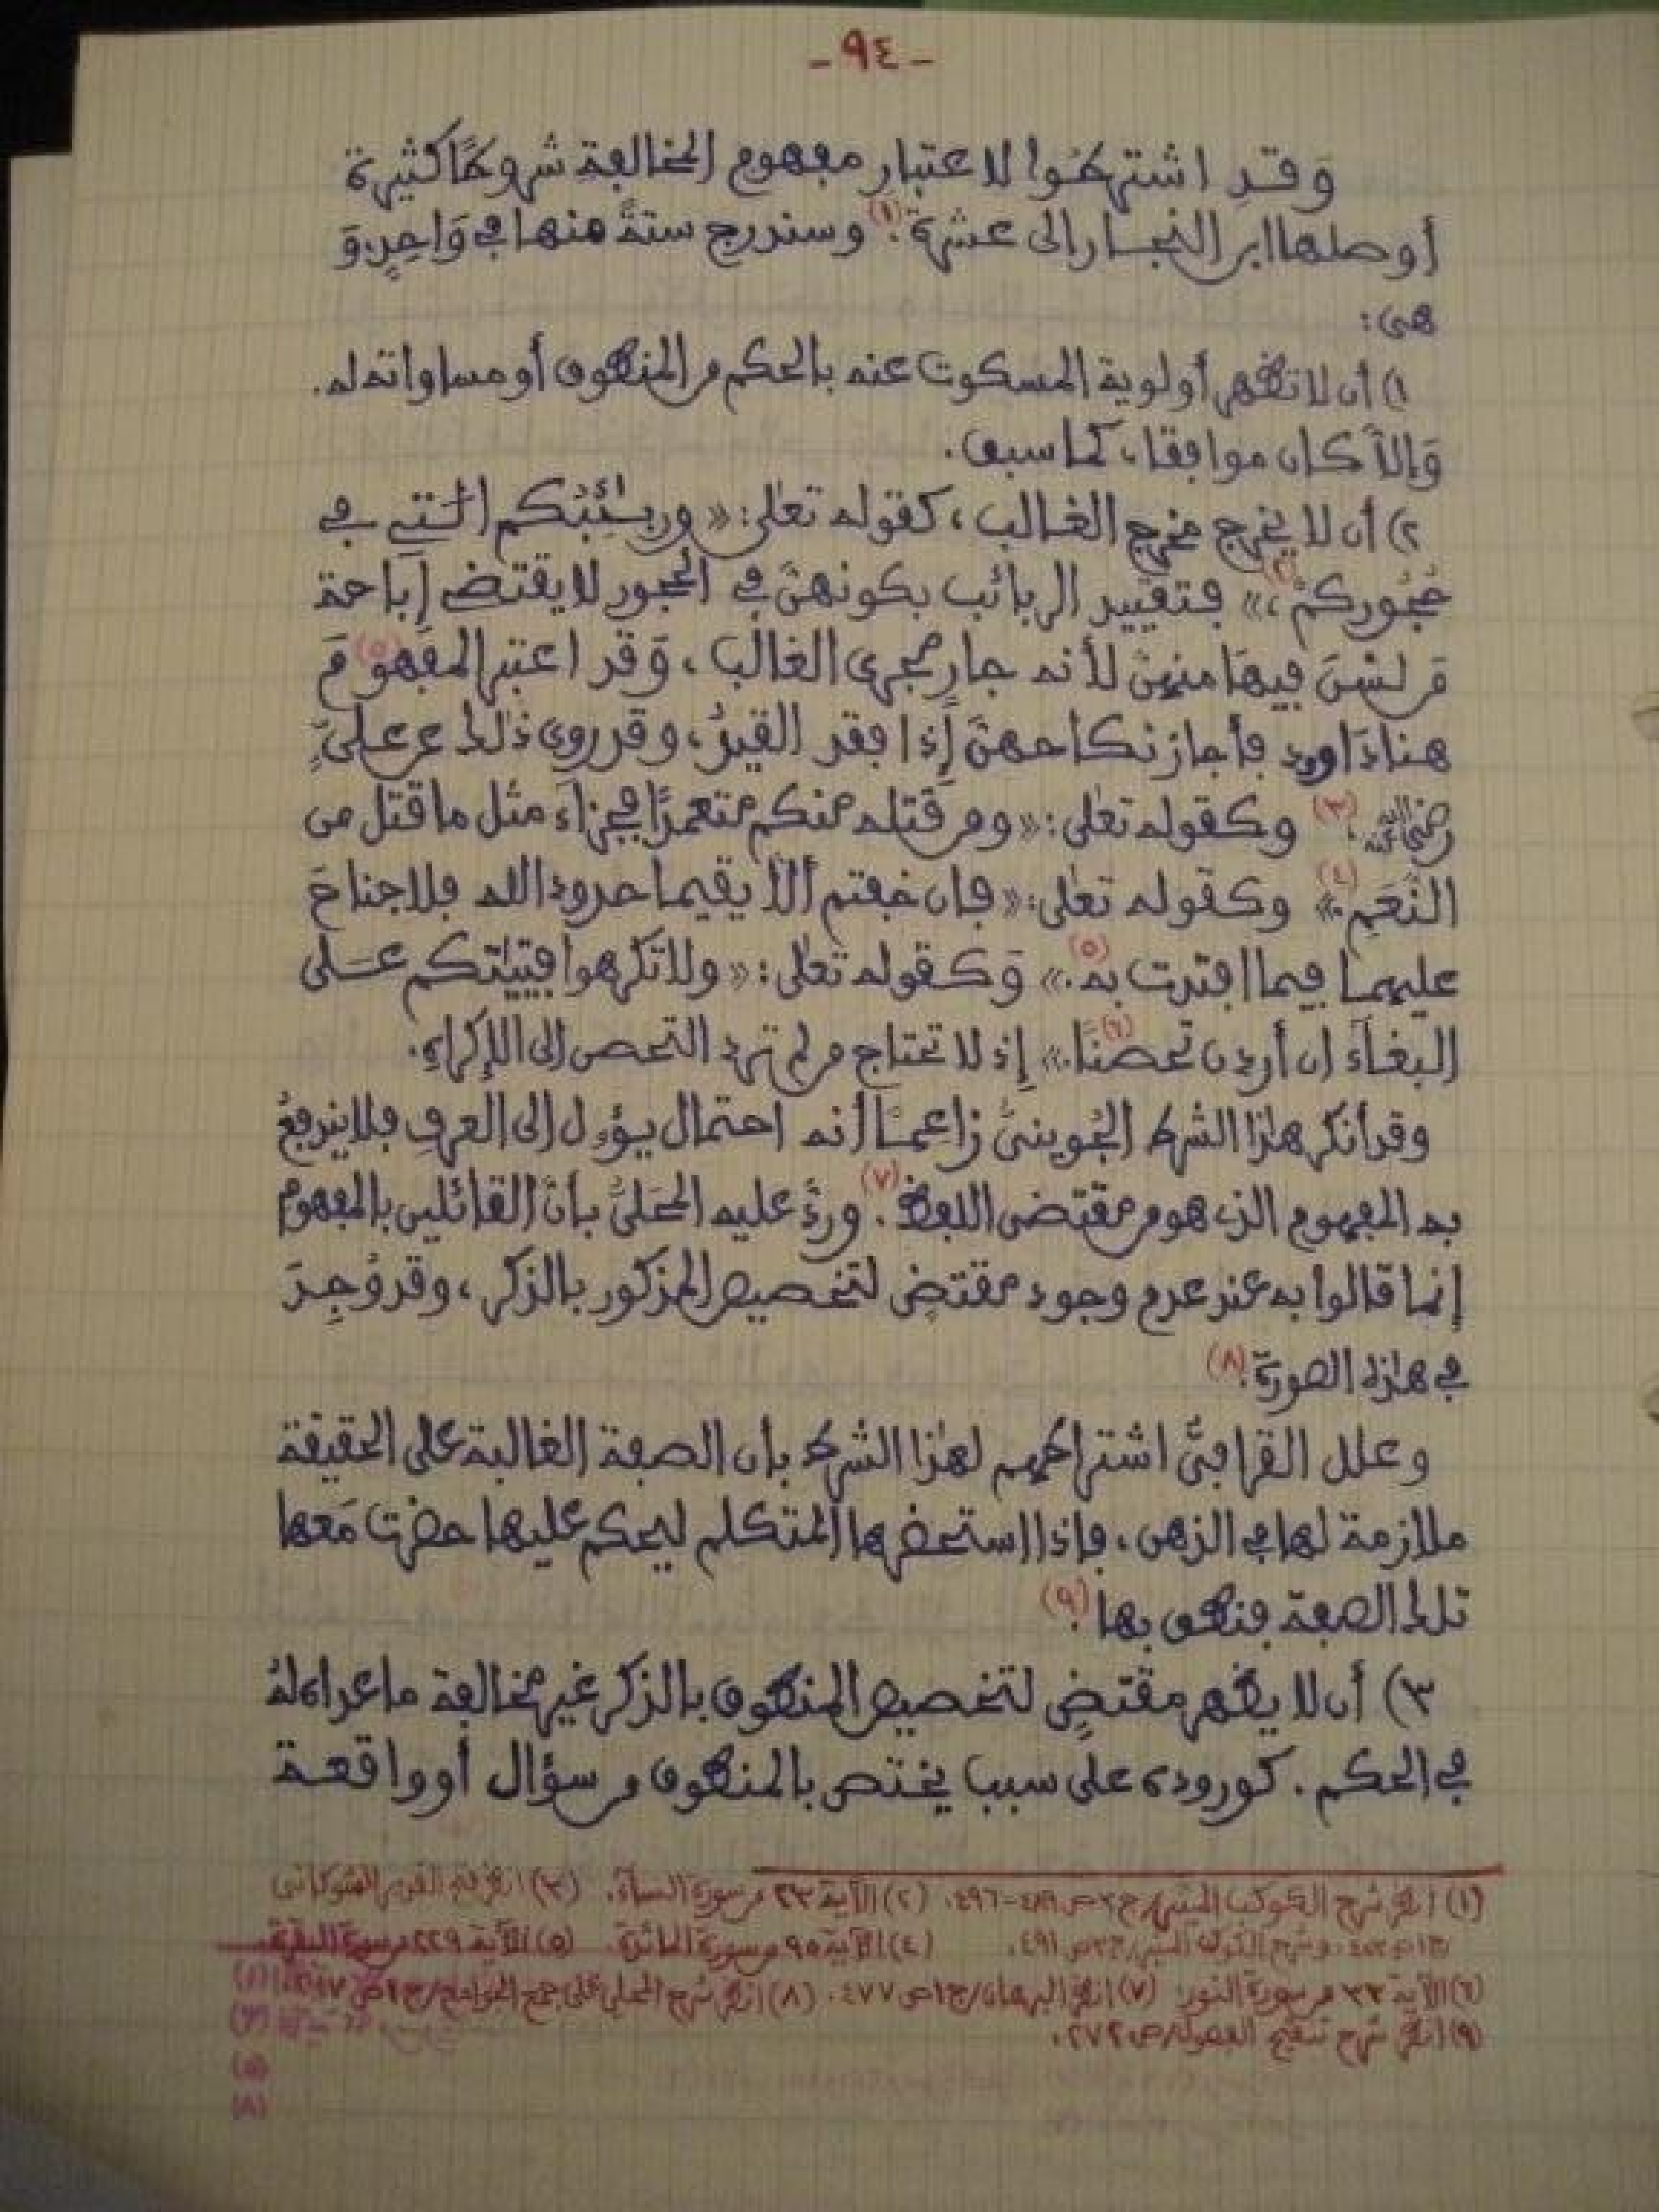 - ٩٤ -
وَقَدِ اشترطُوا لاعتبار مفهوم المخالفة شروطًا كثيرة
أوصلها ابن النجار إلى عشرة.(١) وسندرج ستةً منها في وَاحِدٍ، وَ
هي:
١) أن لا تظهر أولوية المسكوت عنه بالحكم من المنطوق أو مساواته له.
وَإلاَّ كان موافقا، كما سبق.
٢) أن لا يخرج مخرج الغالب، كقوله تعلى: «وربــٰئِبُكم الــٰتي في
حُجُوركمْ،»(٢) فتقييد الربائب بكونهنَّ في الحجور لا يقتضي إباحة
مَن لسْنَ فيهَا منهنَّ لأنه جارٍ مجرى الغالب، وَقد اعتبر المفهومَ
هنا دَاوود فأجاز نكاحهنَّ إذا فقد القيدُ، وقد روي ذلك عن عليٍّ
رضي الله عنه.(٣) وكقوله تعلى: «ومن قتله منكم متعمدًا فجزآءُ مثل ما قتل من
النَّعَمِ.»(٤) وكقوله تعلى: «فإن خفتم ألاَّ يقيما حدود الله فلا جناحَ
عليهما فيما افتدت به.»(٥) وَكقوله تعلى: «ولا تكرهوا فتيٰتكم عــلى
البغآءِ ان أردن تحصنًا.»(٦) إذ لا تحتاج من لم ترد التحصن إلى الإكراهِ.
وقد أنكر هٰذا الشرط الجُوينيُّ زاعمًا أنه احتمال يؤول إلى العرفِ فلا يندفعُ
به المفهوم الذي هو من مقتضى اللفظ.(٧) وردَّ عليه المحَلِّيُّ بأنَّ القائلين بالمفهوم
إنما قالوا به عند عدم وجود مقتضٍ لتخصيص المذكور بالذكر، وقد وُجِدَ
في هٰذه الصورة.(٨)
وعلل القرافيُّ اشتراطهم لهٰذا الشرط بأن الصفة الغالبة على الحقيقة
ملازمة لها في الذهن، فإذا استحضرها المتكلم ليحكم عليها حضرت مَعها
تلك الصفة فنطق بها.(٩)
٣) أن لا يظهر مقتضٍ لتخصيص المنطوق بالذكر غير مخالفة ما عداه لهُ
في الحكم. كوروده على سبب يختص بالمنطوق من سؤال أو واقعــة
(١) انظر شرح الكوكب المنير/ج٣ ص٤٨٩-٤٩٦. (٢) الآية ٢٣ من سورة النسآء. (٣) انظر فتح القدير للشوكاني
وشرح الكوكب المنير/ج٣ ص٤٩١. (٤) الآية ٩٥ من سورة المائدة. (٥) الآية ٢٢٩ من سورة البقرة.
(٦) الآية ٣٣ من سورة النور. (٧) انظر البرهان/ج١ ص٤٧٧. (٨) انظر شرح المحلي على جمع الجوامع/ج١
(٩) انظر شرح تنقيح الفصول/ص٢٧٢.